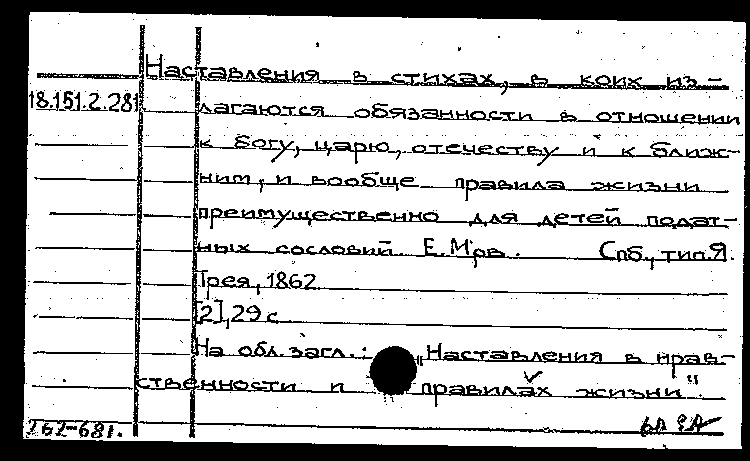 Наставления в стихах, в коих из-
18.151.2.281
лагаются обязанности в отношении
к богу, царю, отечеству и к ближ-
ним, и вообще правила жизни
преимущественно для детей подат-
ных сословий. Е. М-рв. Спб., тип. Я.
Грея, 1862
[2], 29 с
На обл. загл.: „Наставления в нрав-
ственности и правилах жизни"
262-681.